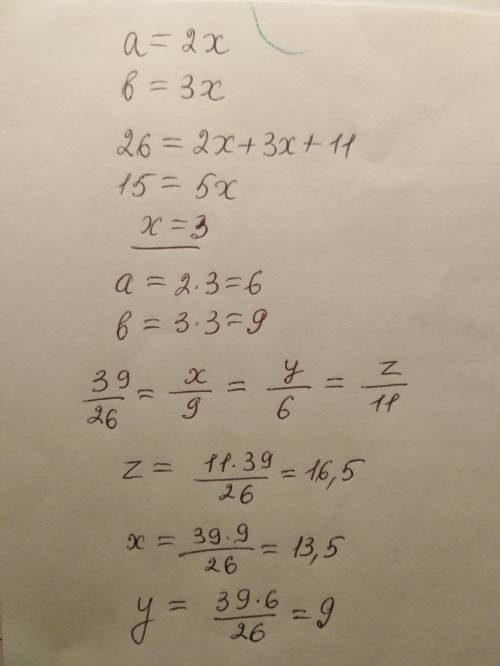 a = 2x
в = 3x
26 = 2x + 3x + 11
15 = 5x
x = 3
a = 2·3 = 6
в = 3·3 = 9
39/26 = x/9 = y/6 = z/11
z = 11·39/26 = 16,5
x = 39·9/26 = 13,5
y = 39·6/26 = 9